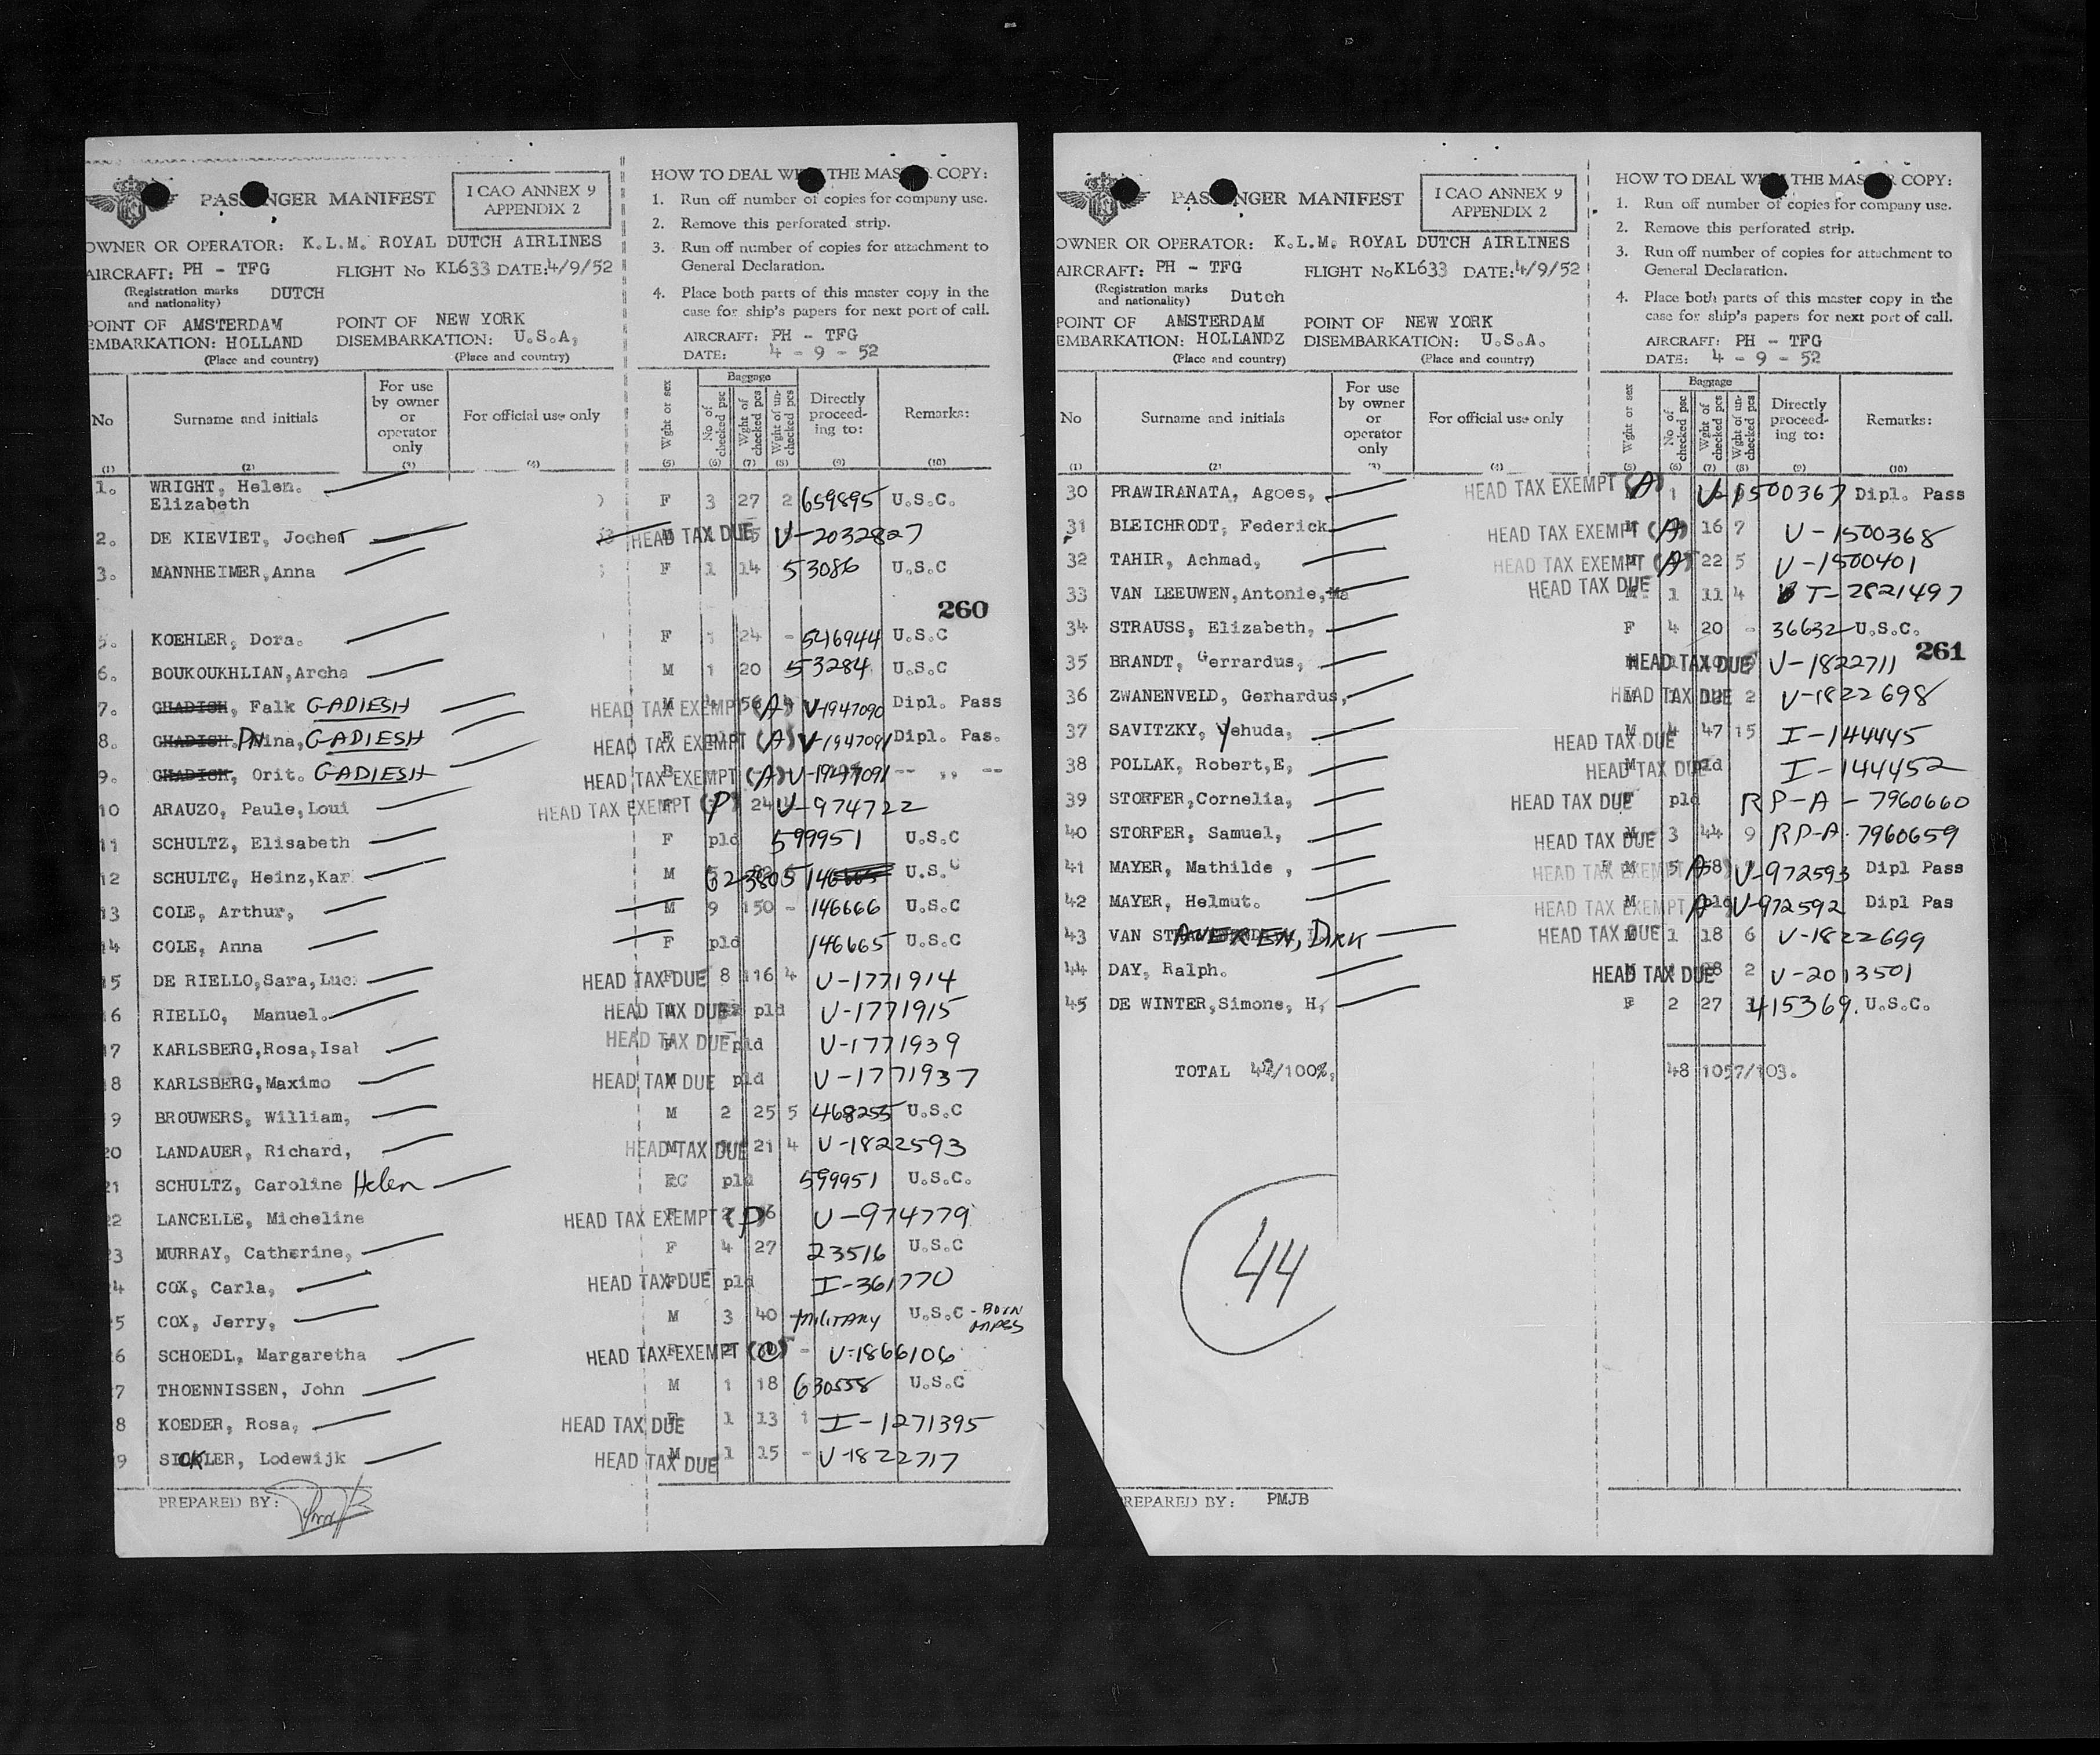 PASSENGER MANIFEST
I CAO ANNEX 9
APPENDIX 2
OWNER OR OPERATOR: K.L.M. ROYAL DUTCH AIRLINES
AIRCRAFT: PH - TFG FLIGHT No KL633 DATE: 4/9/52
(Registration marks and nationality) DUTCH
POINT OF EMBARKATION: AMSTERDAM HOLLAND POINT OF DISEMBARKATION: NEW YORK U.S.A.
(Place and country) (Place and country)
HOW TO DEAL WITH THE MASTER COPY:
1. Run off number of copies for company use.
2. Remove this perforated strip.
3. Run off number of copies for attachment to
General Declaration.
4. Place both parts of this master copy in the
case for ship's papers for next port of call.
AIRCRAFT: PH - TFG
DATE: 4 - 9 - 52
No Surname and initials For use by owner or operator only For official use only Wght or sex Baggage No of checked psc Wght of checked pcs Wght of un-checked pcs Directly proceed-ing to: Remarks:
(1) (2) (3) (4) (5) (6) (7) (8) (9) (10)
1. WRIGHT, Helen. Elizabeth F 3 27 2 659895 U.S.C.
2. DE KIEVIET, Jochem HEAD TAX DUE V-2032827
3. MANNHEIMER, Anna F 1 14 53086 U.S.C
260
5. KOEHLER, Dora. F 1 24 - 546944 U.S.C
6. BOUKOUKHLIAN, Archa M 1 20 53284 U.S.C
7. GHADISH, Falk GADIESH HEAD TAX EXEMPT (A) M 56 V-1947090 Dipl. Pass
8. GHADISH. PNina, GADIESH HEAD TAX EXEMPT (A) F V-1947091 Dipl. Pas.
9. GHADISH, Orit. GADIESH HEAD TAX EXEMPT (A) V-1947091 -- ,, --
10 ARAUZO, Paule, Loui HEAD TAX EXEMPT (P) 24 V-974722
11 SCHULTZ, Elisabeth F pld 599951 U.S.C
12 SCHULTZ, Heinz, Kar M 623805 U.S.C
13 COLE, Arthur, M 9 150 - 146666 U.S.C
14 COLE, Anna F pld 146665 U.S.C
15 DE RIELLO, Sara, Luc. HEAD TAX DUE F 8 116 4 V-1771914
16 RIELLO, Manuel. HEAD TAX DUE pld V-1771915
17 KARLSBERG, Rosa, Isal HEAD TAX DUE F pld V-1771939
18 KARLSBERG, Maximo HEAD TAX DUE M pld V-1771937
19 BROUWERS, William, M 2 25 5 468255 U.S.C
20 LANDAUER, Richard, HEAD TAX DUE M 21 4 V-1822593
21 SCHULTZ, Caroline Helen pld 599951 U.S.C.
22 LANCELLE, Micheline HEAD TAX EXEMPT (P) V-974779
23 MURRAY, Catherine, F 4 27 23516 U.S.C
24 COX, Carla, HEAD TAX DUE F pld I-361770
25 COX, Jerry, M 3 40 MILITARY U.S.C - BORN MPBS
26 SCHOEDL, Margaretha HEAD TAX EXEMPT - V-1866106
27 THOENNISSEN, John M 1 18 630558 U.S.C
28 KOEDER, Rosa, HEAD TAX DUE F 1 13 1 I-1271395
29 SICKLER, Lodewijk HEAD TAX DUE M 1 15 - V-1822717
PREPARED BY:
PASSENGER MANIFEST
I CAO ANNEX 9
APPENDIX 2
OWNER OR OPERATOR: K.L.M. ROYAL DUTCH AIRLINES
AIRCRAFT: PH - TFG FLIGHT No KL633 DATE: 4/9/52
(Registration marks and nationality) Dutch
POINT OF EMBARKATION: AMSTERDAM HOLLANDZ POINT OF DISEMBARKATION: NEW YORK U.S.A.
(Place and country) (Place and country)
HOW TO DEAL WITH THE MASTER COPY:
1. Run off number of copies for company use.
2. Remove this perforated strip.
3. Run off number of copies for attachment to
General Declaration.
4. Place both parts of this master copy in the
case for ship's papers for next port of call.
AIRCRAFT: PH - TFG
DATE: 4 - 9 - 52
No Surname and initials For use by owner or operator only For official use only Wght or sex Baggage No of checked psc Wght of checked pcs Wght of un-checked pcs Directly proceed-ing to: Remarks:
(1) (2) (3) (4) (5) (6) (7) (8) (9) (10)
30 PRAWIRANATA, Agoes, HEAD TAX EXEMPT (A) 1 V-1500367 Dipl. Pass
31 BLEICHRODT, Federick HEAD TAX EXEMPT (A) 16 7 V-1500368
32 TAHIR, Achmad, HEAD TAX EXEMPT (A) 22 5 V-1500401
33 VAN LEEUWEN, Antonie, Ma HEAD TAX DUE 1 11 4 T-2821497
34 STRAUSS, Elizabeth, F 4 20 - 36632 U.S.C.
35 BRANDT, Gerrardus, HEAD TAX DUE V-1822711
261
36 ZWANENVELD, Gerhardus, HEAD TAX DUE 2 V-1822698
37 SAVITZKY, Yehuda, HEAD TAX DUE M 4 47 15 I-144445
38 POLLAK, Robert, E, HEAD TAX DUE M pld I-144452
39 STORFER, Cornelia, HEAD TAX DUE F pld RP-A-7960660
40 STORFER, Samuel, HEAD TAX DUE M 3 44 9 RP-A-7960659
41 MAYER, Mathilde, HEAD TAX EXEMPT M 5 A 58 V-972593 Dipl Pass
42 MAYER, Helmut. HEAD TAX EXEMPT A pld V-972592 Dipl Pas
43 VAN STAVEREN, DIRK HEAD TAX DUE 1 18 6 V-1822699
44 DAY, Ralph. HEAD TAX DUE 28 2 V-2013501
45 DE WINTER, Simone, H, F 2 27 415369. U.S.C.
TOTAL /100%, 48 1057/103.
44
PREPARED BY: PMJB